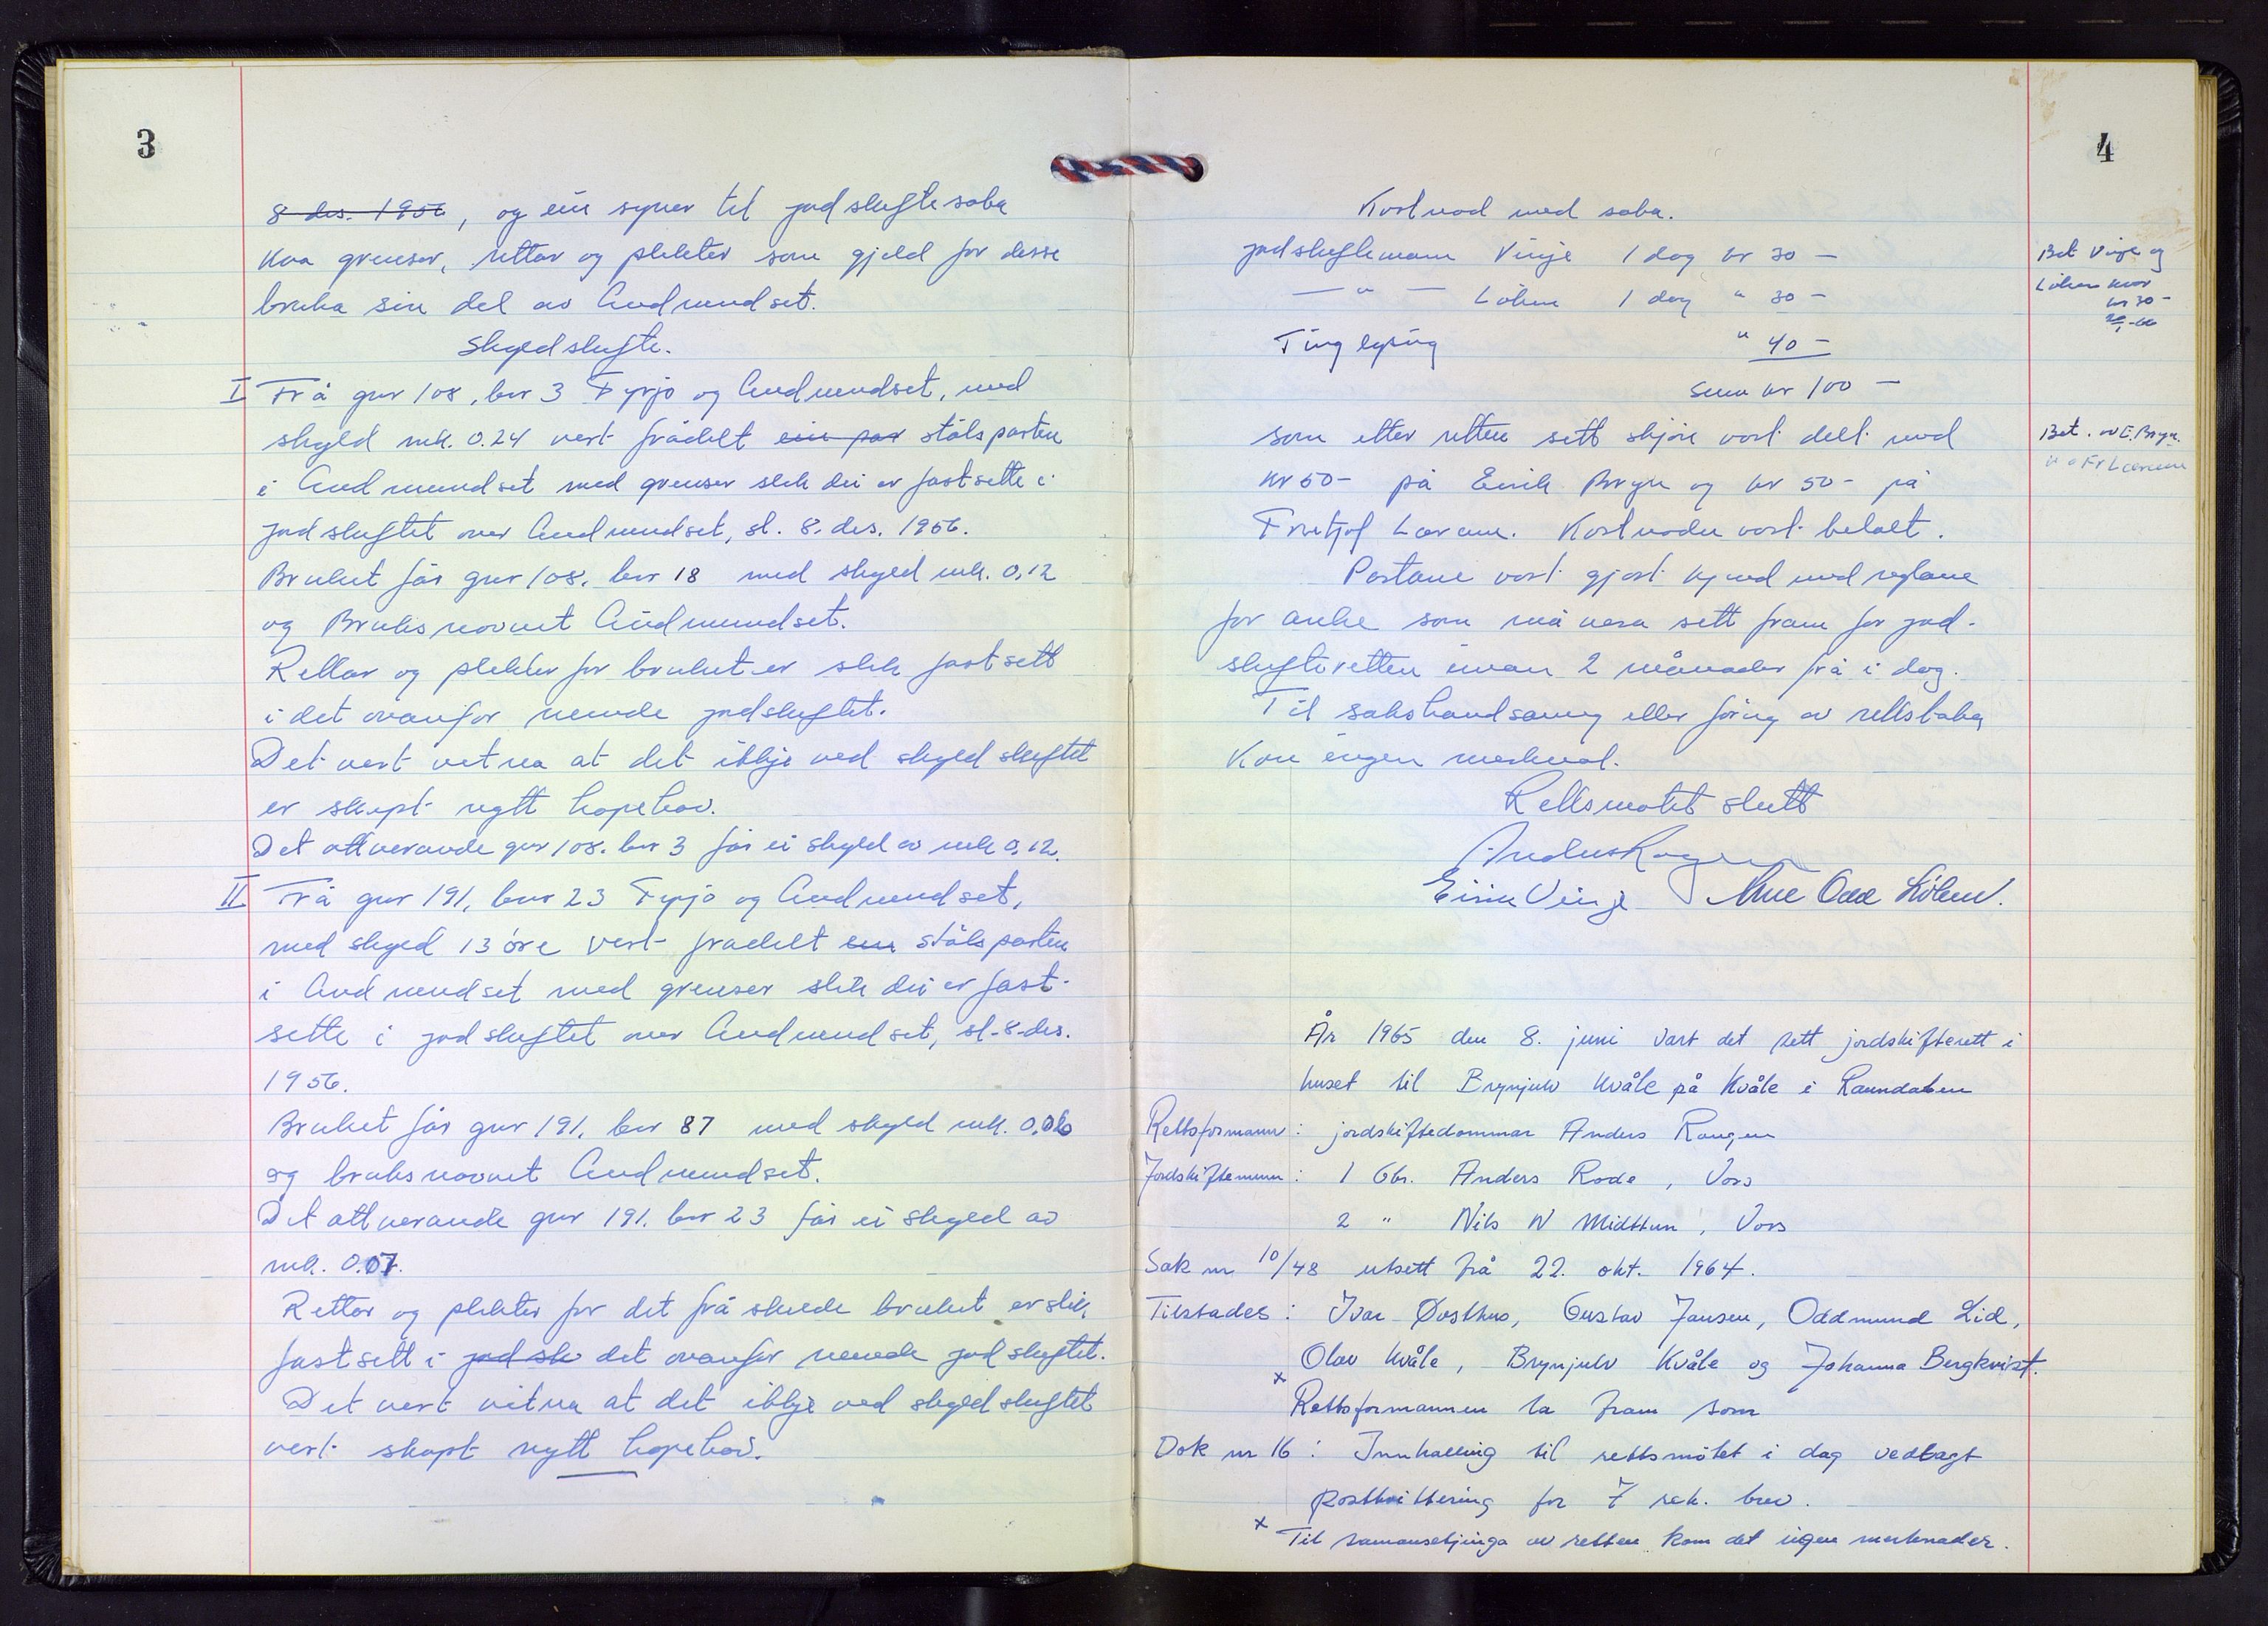 3
8 des. 1956, og ein syner til jordskiftesaka
kva grenser, rettar og plikter som gjeld for desse
bruka sin del av Audmundset.
Skyldskifte.
I Frå gnr 108, bnr 3 Fyrjo og Audmundset, med
skyld mk. 0.24 vert frådelt ein par stölsparten
i Audmundset med grenser slik dei er fastsette i
jordskiftet over Audmundset, sl. 8. des. 1956.
Bruket får gnr 108, bnr 18 med skyld mk. 0,12
og Bruksnavnet Audmundset.
Rettar og plikter for bruket er slik fastsett
i det ovanfor nemnde jordskiftet.
Det vert vitna at det ikkje ved skyldskiftet
er skapt nytt hopehav.
Det attverande gnr 108. bnr 3 får ei skyld av mk 0,12.
II Frå gnr 191, bnr 23 Fyrjo og Audmundset,
med skyld 13 öre vert frådelt ein stölsparten
i Audmundset med grenser slik dei er fast-
sette i jordskiftet over Audmundset, sl. 8. des.
1956.
Bruket får gnr 191, bnr 87 med skyld mk. 0,06
og bruksnavnet Audmundset.
Det attverande gnr 191. bnr 23 får ei skyld av
mk. 0.07.
Rettar og plikter for det fråskilde bruket er slik
fastsett i jordsk det ovanfor nemnde jordskiftet.
Det vert vitna at det ikkje ved skyldskiftet
vert skapt nytt hopehav.
4
Kostnad med saka.
Jordskiftemann Vinje 1 dag kr 30 -
— " — Löhne 1 dag " 30 -
Tinglysing " 40 -
Sum kr 100 -
Bet Vinje og
Löhne kvar
kr 30 -
som etter retten sett skjön vart delt med
kr 50- på Eirik Bryn og kr 50- på
Fritjof Lærum. Kostnaden vart betalt.
Bet. av E. Bryn.
" " Fr Lærum
Partane vart gjort kjend med reglane
for anke som må vera sett fram for jord-
skifteretten innan 2 månader frå i dag.
Til sakshandsaming eller föring av rettsboka
kom ingen merknad.
Rettsmötet slutt
Anders Rongen
Eirik Vinje Odd Löhne.
År 1965 den 8. juni vart det sett jordskifterett i
huset til Brynjulv Kvåle på Kvåle i Raundalen
Rettsformann: jordskiftedommar Anders Rongen
Jordskiftemenn: 1 Gbr. Anders Rode, Voss
2 " Nils N Midttun, Voss
Sak nr 10/48 utsett frå 22. okt. 1964.
Tilstades: Ivar Østhus, Gustav Jansen, Oddmund Lid,
Olav Kvåle, Brynjulv Kvåle og Johanna Bergkvist.
x
Rettsformannen la fram som
Dok nr 16: Innkalling til rettsmötet i dag vedlagt
postkvittering for 7 rek. brev.
x Til samansetjinga av retten kom det ingen merknader.